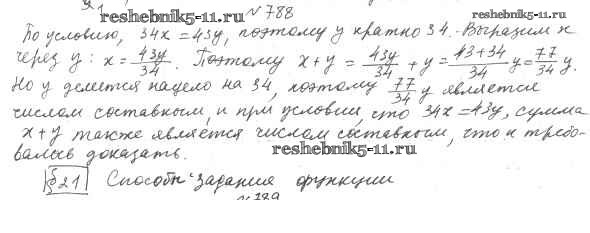 reshebnik5-11.ru №788
reshebnik5-11.ru
По условию, 34x = 43y, поэтому y кратно 34. Выразим x
через y: x = 43y/34. Поэтому x + y = 43y/34 + y = 43+34/34 y = 77/34 y.
Но y делится нацело на 34, поэтому 77/34 y является
числом составным, и при условии, что 34x = 43y, сумма
x + y также является числом составным, что и требо-
валось доказать.
reshebnik5-11.ru
§21 Способы задания функции